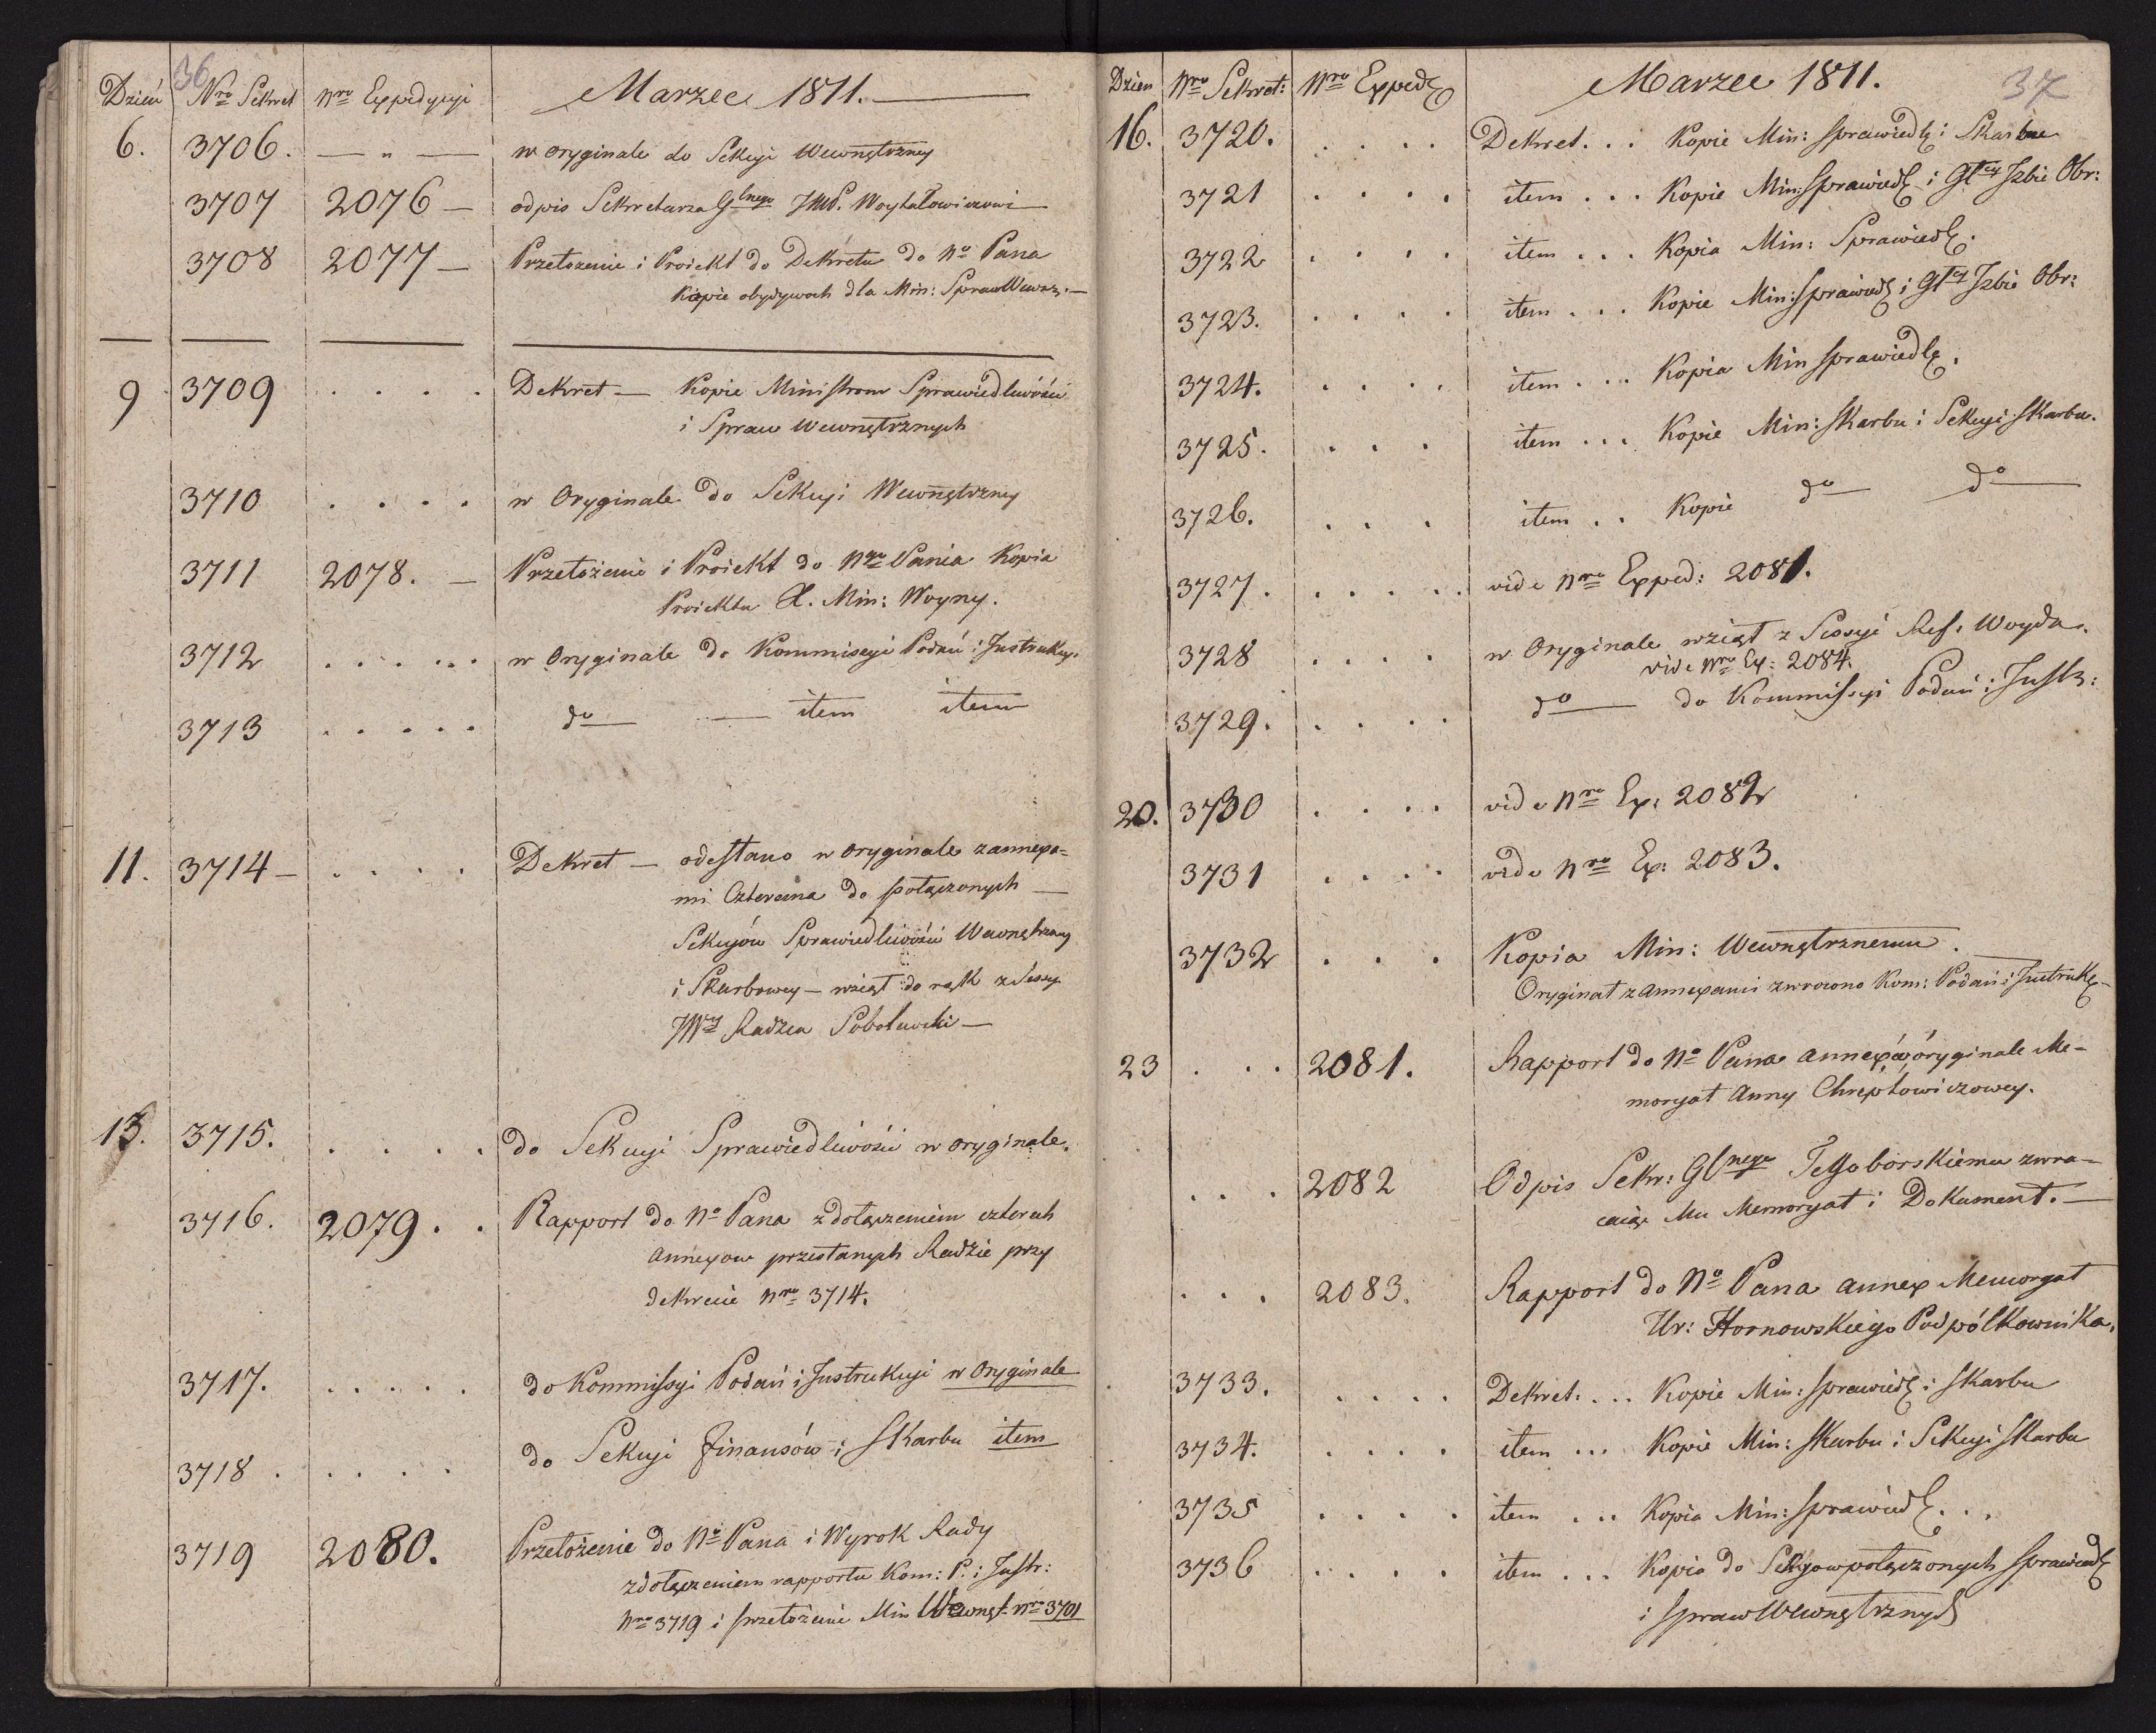 36
Dzień Nro Sekret Nro Expedycyi Marzec 1811.
6. 3706. — " — w oryginale do Sekcyi Wewnętrzney
3707 2076 — odpis Sekretarza Glnego JWP. Woytałowiczowi
3708 2077 — Przełożenie i Proiekt do Dekretu do No Pana
Kopie obydwoch dla Min: Spraw Wewn. —
9 3709 . . . . Dekret — Kopie Ministrom Sprawiedliwości
i Spraw Wewnętrznych
3710 . . . . w Oryginale do Sekcyi Wewnętrzney
3711 2078. — Przełożenie i Proiekt do Ngo Pania Kopia
Proiektu X. Min: Woyny.
3712 . . . . . . w Oryginale do Kommissyi Podań i Instrukcy.
3713 . . . . . do — — item item
11. 3714 — . . . . Dekret — odesłano w oryginale z annexa=
mi Czterema do połączonych —
Sekcyów Sprawiedliwości Wewnętrzney
i Skarbowey — wziął do rąk z Sessy.
JWny Radzca Sobolewski —
13. 3715. . . . . do Sekcyi Sprawiedliwości w oryginale.
3716. 2079. . Rapport do No Pana z dołączeniem czterech
annexow przesłanych Radzie przy
dekrecie Nro 3714.
3717. . . . . . do Kommissyi Podań i Instrukcyi w Oryginale
3718 . . . . . do Sekcyi Finansów i Skarbu item
3719 2080. Przełożenie do No Pana i Wyrok Rady
z dołączeniem rapportu Kom: P. i Instr:
Nro 3719 i przełożenie Min Wewnęt. Nro 3701
37
Dzien Nro Sekret: Nro Exped Marzec 1811.
16. 3720. . . . . Dekret. . . Kopie Min: Sprawiedl i Skarbu
3721 . . . . item . . . Kopie Min: Sprawiedl i Głey Izbie Obr:
3722 . . . . item . . . Kopia Min: Sprawiedl.
3723. . . . . item . . . Kopie Min: Sprawiedl i Głey Izbie Obr:
3724. . . . . item . . . Kopia Min Sprawiedl.
3725. . . . item . . . Kopie Min: Skarbu i Sekcyi Skarbu.
3726. . . . item . . Kopie do — do —
3727. . . . . . vide Nro Exped: 2081.
3728 . . . . w Oryginale wziął z Sessyi Ref: Woyda.
vide Nro Ex: 2084.
3729. . . . . do — do Kommissyi Podań i Instr:
20. 3730 . . . . vide Nro Ex: 2082
3731 . . . . vide Nro Ex: 2083.
3732 . . . Kopia Min: Wewnętrznemu.
Oryginał z annexami zwrocono Kom: Podań i Instrukc
23 . . . 2081. Rapport do No Pana annex w oryginale Me-
moryał Anny Chreptowiczowey.
. . . 2082 Odpis Sekr: Glnego Tęgoborskiemu zwra-
caiąc Mu Memoryał i Dokument. —
. . . 2083. Rapport do No Pana annex Memoryał
Ur: Hornowskiego Podpółkownika.
3733. . . . . Dekret: . . . Kopie Min: Sprawiedl i Skarbu
3734. . . . . item . . . Kopie Min: Skarbu i Sekcyi Skarbu
3735 . . . . item . . . Kopia Min: Sprawiedl. . .
3736 . . . . item . . . Kopia do Sekcyow połączonych Sprawiedl
i Spraw Wewnętrznych